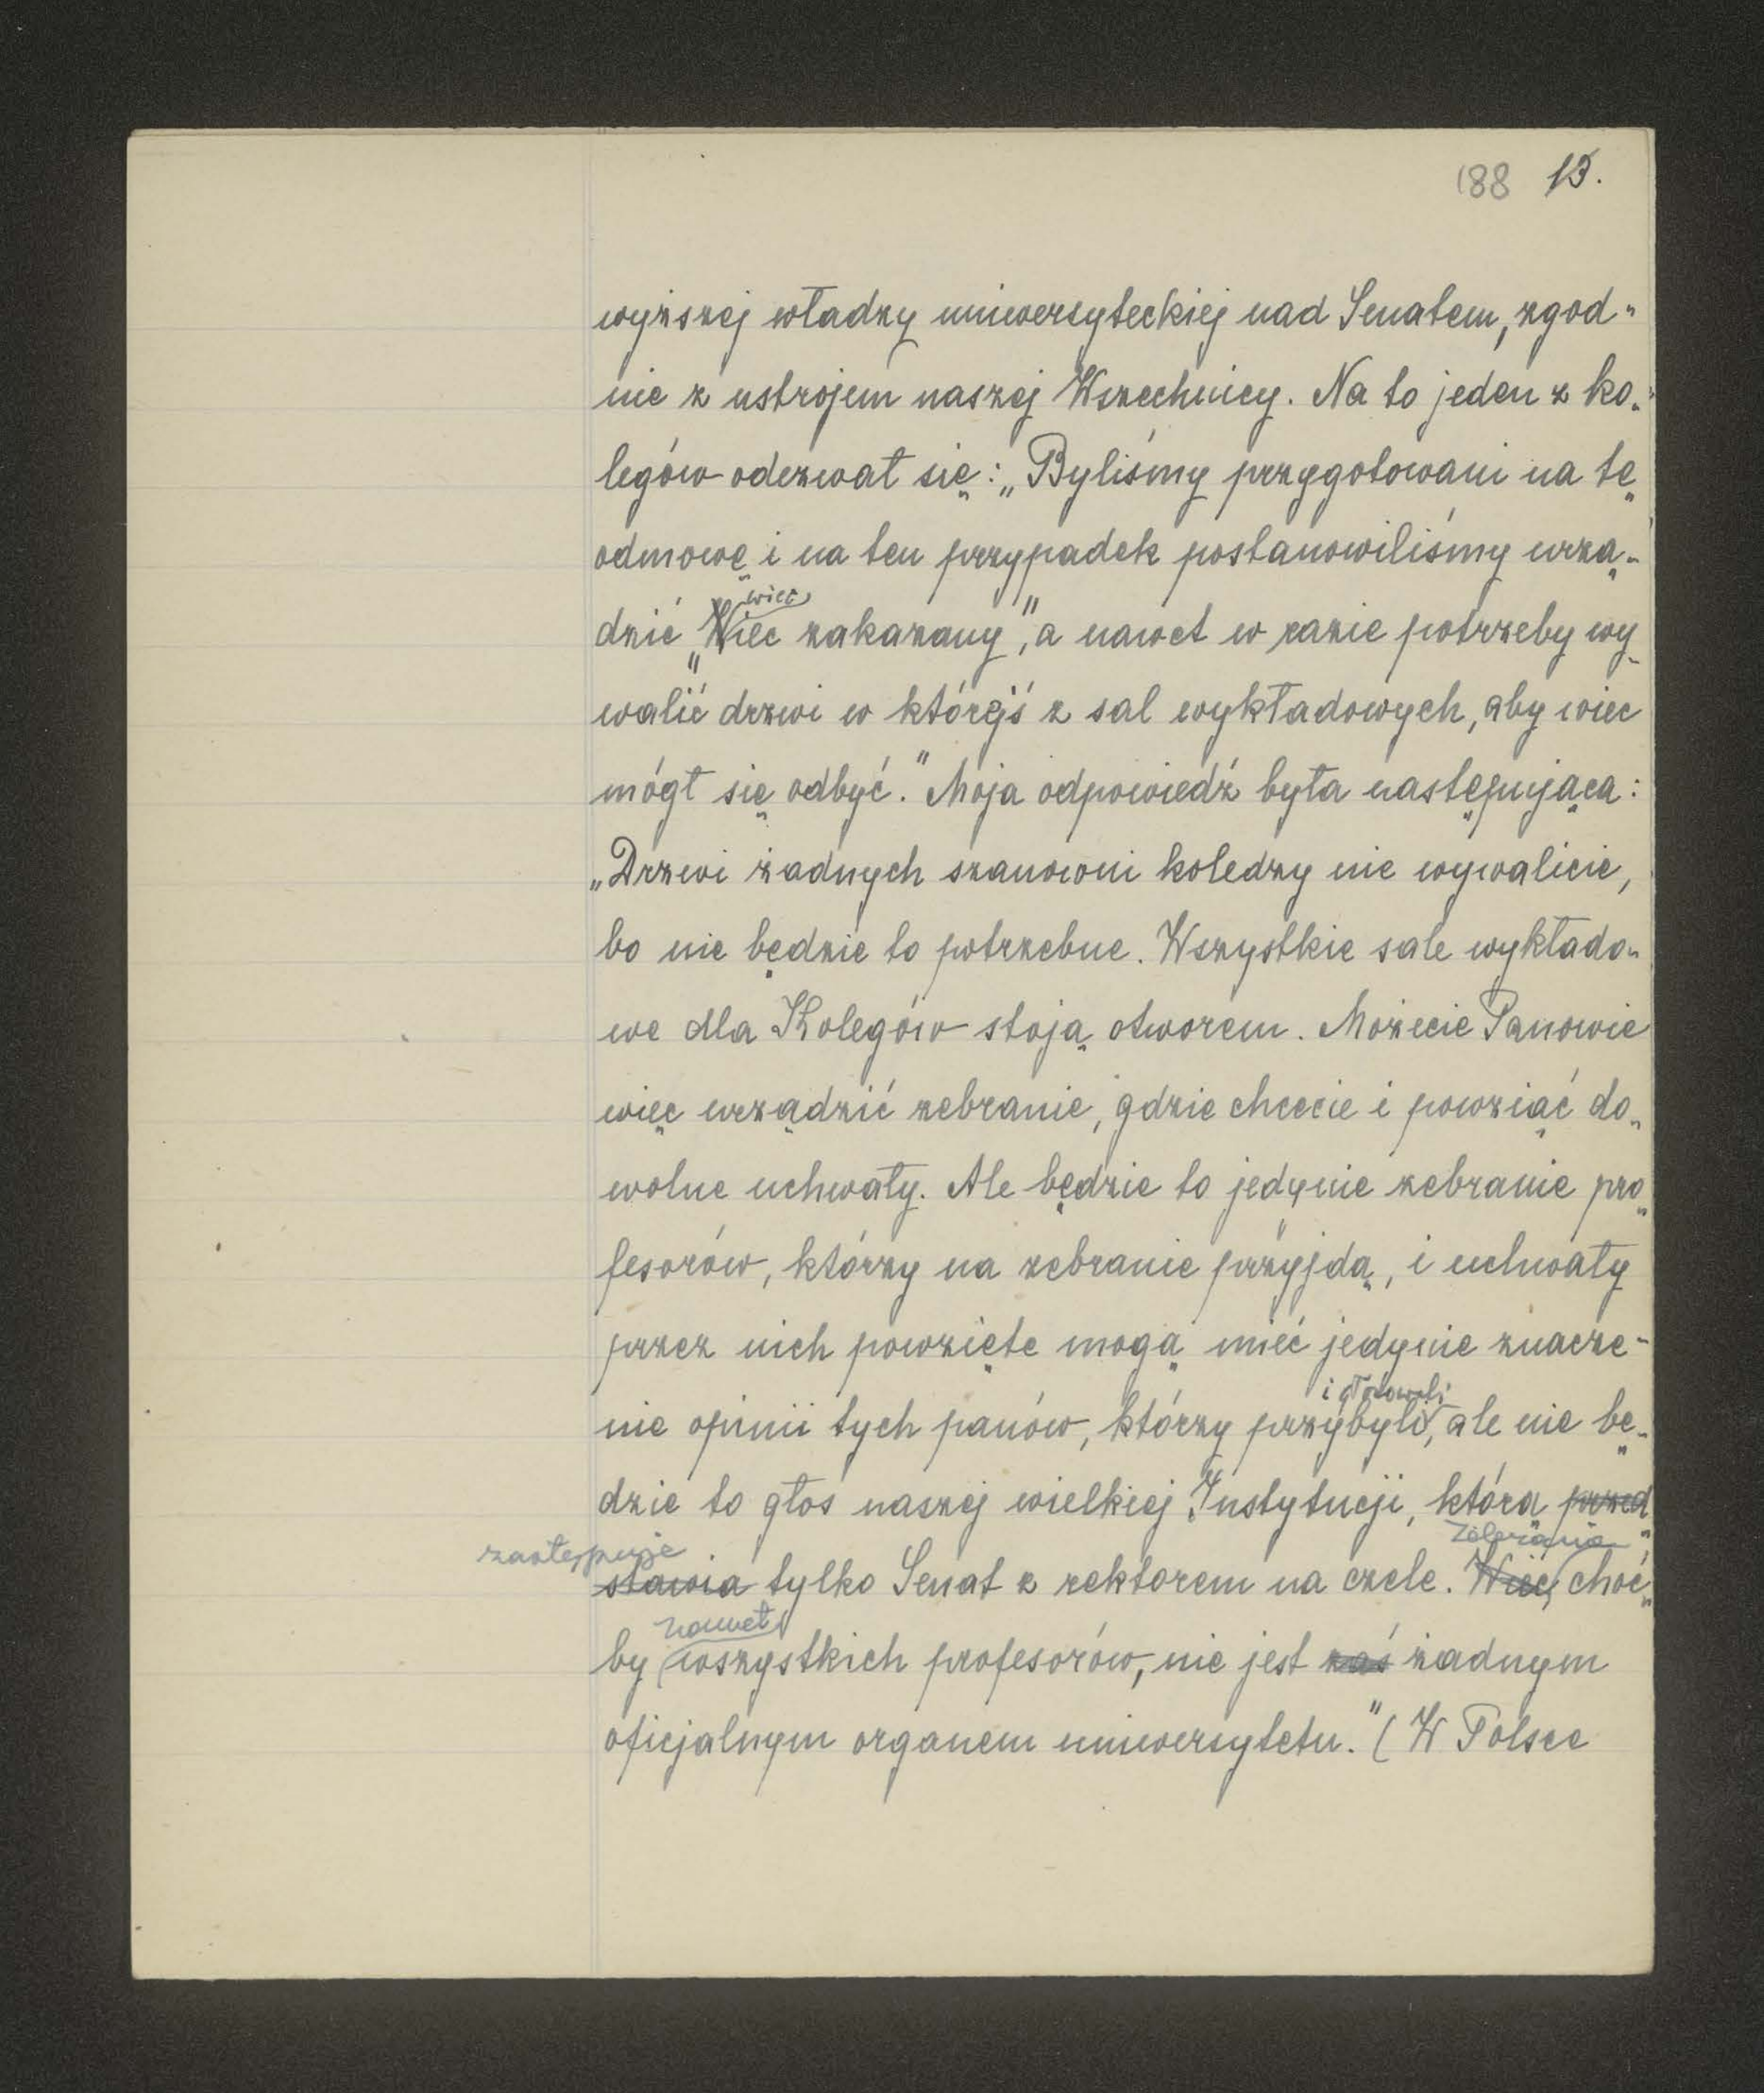 188 13.
wyższej władzy uniwersyteckiej nad Senatem, zgod-
nie z ustrojem naszej Wszechnicy. Na to jeden z ko-
legów odezwał się: „Byliśmy przygotowani na tę
odmowę i na ten przypadek postanowiliśmy urzą-
wiec
dzić „Wiec zakazany", a nawet w razie potrzeby wy-
walić drzwi w którejś z sal wykładowych, aby wiec
mógł się odbyć." Moja odpowiedź była następująca:
„Drzwi żadnych szanowni koledzy nie wywalicie,
bo nie będzie to potrzebne. Wszystkie sale wykłado-
we dla Kolegów stoją otworem. Możecie Panowie
więc urządzić zebranie, gdzie chcecie i powziąć do-
wolne uchwały. Ale będzie to jedynie zebranie pro-
fesorów, którzy na zebranie przyjdą, i uchwały
przez nich powzięte mogą mieć jedynie znacze-
i głosowali
nie opinii tych panów, którzy przybyli, ale nie bę-
dzie to głos naszej wielkiej Instytucji, którą przed-
zastępuje zebranie
stawia tylko Senat z rektorem na czele. Wiec, choć-
nawet
by wszystkich profesorów, nie jest zaś żadnym
oficjalnym organem uniwersytetu." (W Polsce